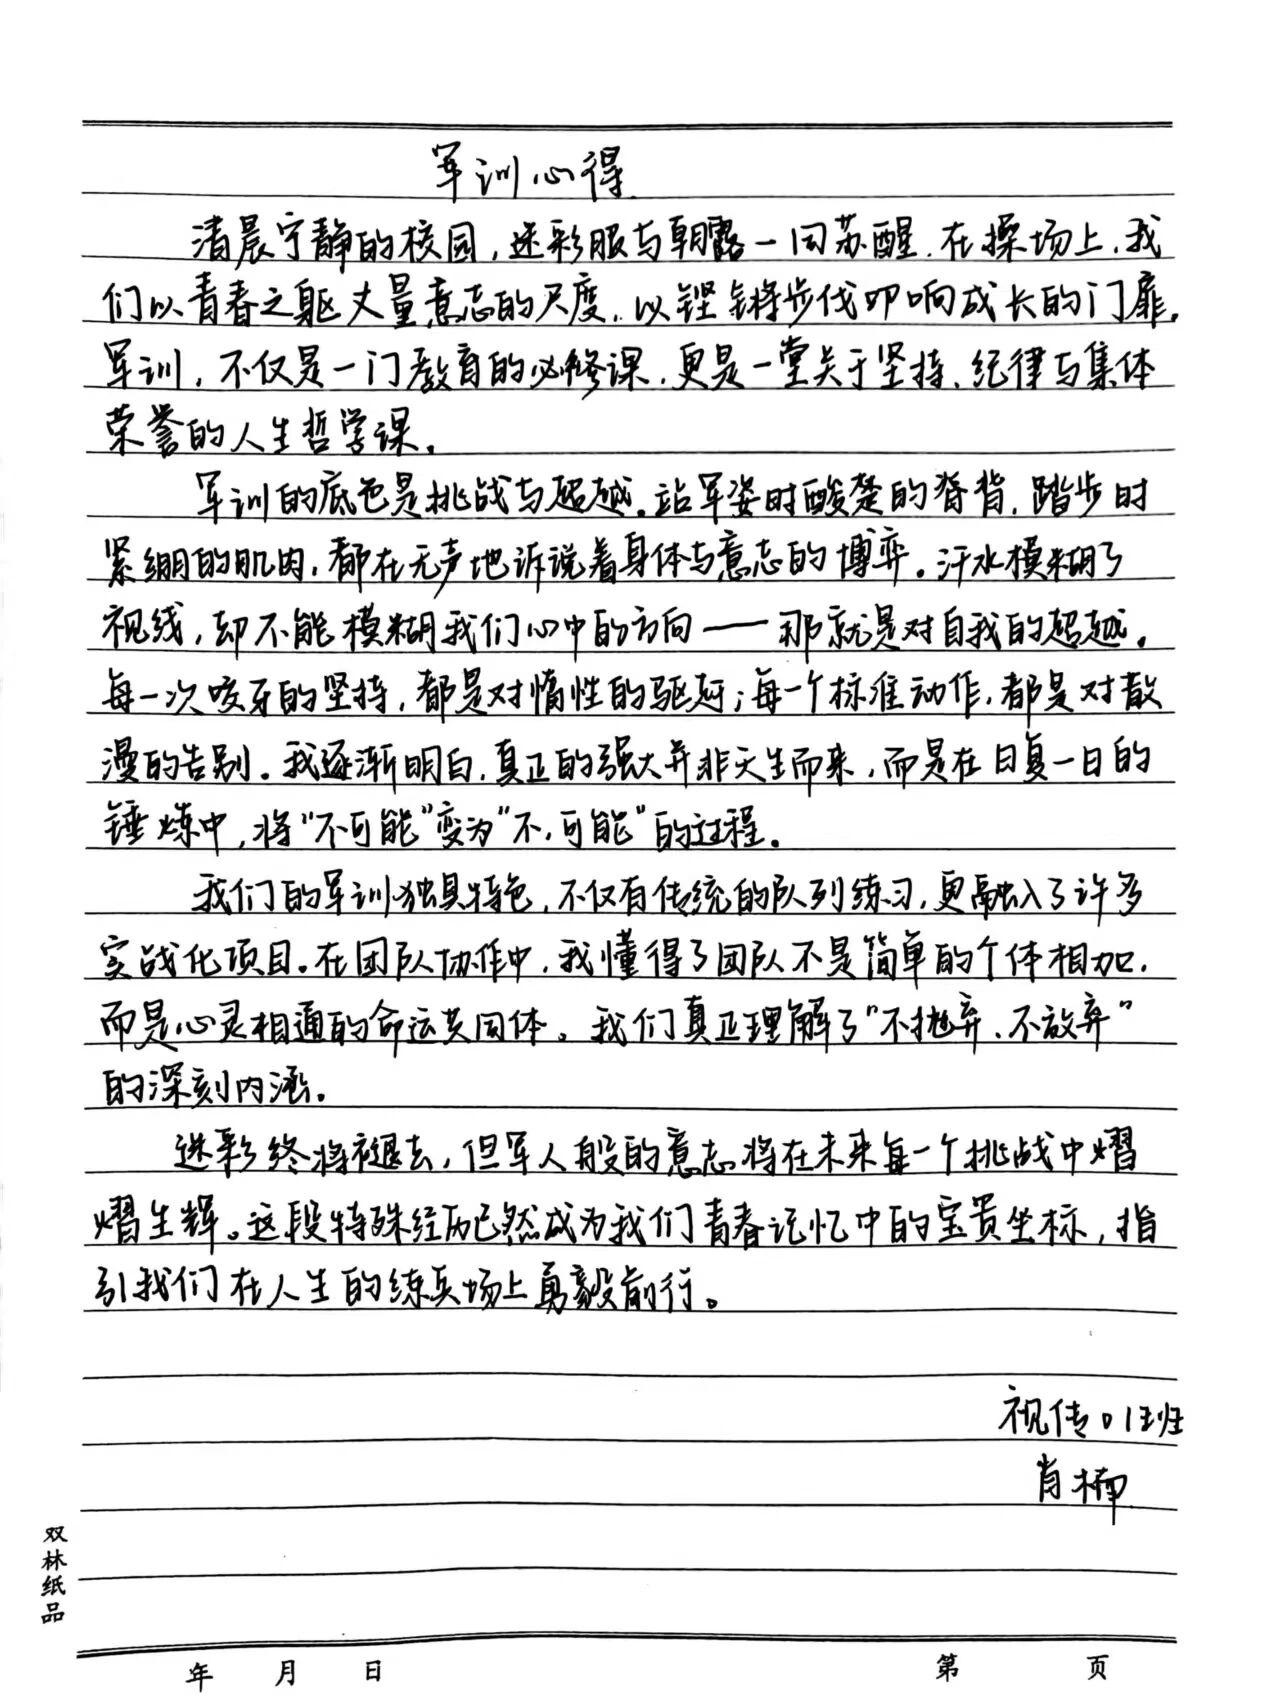 军训心得
清晨宁静的校园，迷彩服与朝露一同苏醒．在操场上，我
们以青春之躯丈量意志的尺度，以铿锵步伐叩响成长的门扉。
军训，不仅是一门教育的必修课，更是一堂关于坚持、纪律与集体
荣誉的人生哲学课。
军训的底色是挑战与超越。站军姿时酸楚的脊背，踏步时
紧绷的肌肉，都在无声地诉说着身体与意志的博弈。汗水模糊了
视线，却不能模糊我们心中的方向——那就是对自我的超越。
每一次咬牙的坚持，都是对惰性的驱赶；每一个标准动作，都是对散
漫的告别。我逐渐明白，真正的强大并非天生而来，而是在日复一日的
锤炼中，将“不可能”变为“不，可能”的过程。
我们的军训独具特色，不仅有传统的队列练习，更融入了许多
实战化项目。在团队协作中，我懂得了团队不是简单的个体相加，
而是心灵相通的命运共同体。我们真正理解了“不抛弃、不放弃”
的深刻内涵。
迷彩终将褪去，但军人般的意志将在未来每一个挑战中熠
熠生辉。这段特殊经历已然成为我们青春记忆中的宝贵坐标，指
引我们在人生的练兵场上勇毅前行。
视传01班
肖楠
双林纸品
年 月 日 第 页